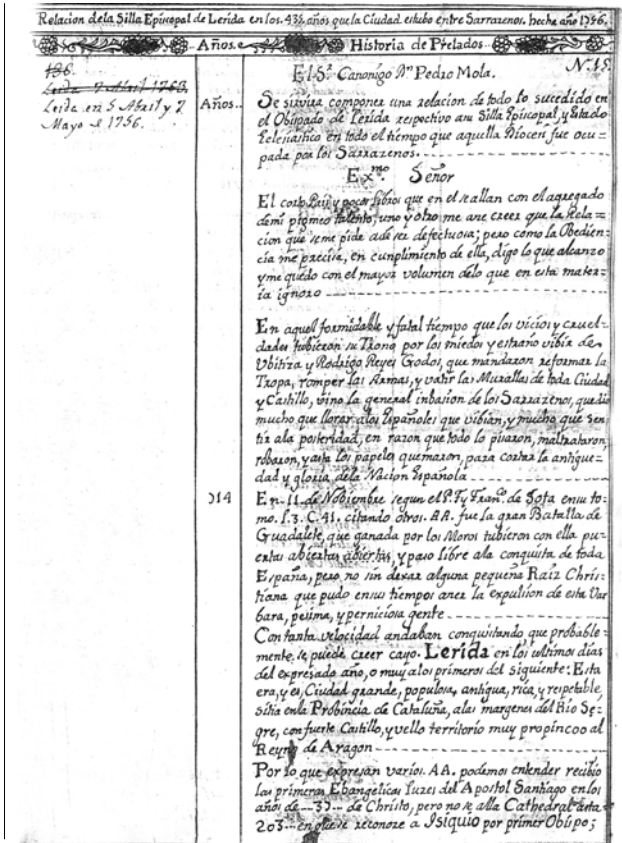 Relacion de la Silla Episcopal de Lerida en los. 435. años que la Ciudad estubo entre Sarrazenos. hecha año 1756.
Años.
Historia de Prelados.
N. 15.
136.
Leida 7 Abril 1763.
Leida en 5 Abril y 2
Mayo de 1756.
Años..
El S.r Canonigo Dn Pedro Mola.
Se sirvira componer una relacion de todo lo sucedido en
el Obispado de Lerida respectivo asu Silla Episcopal, y estado
Eclesiastico en todo el tiempo que aquella Diocesi fue ocu=
pada por los Sarrazenos.
Exmo. Señor
El corto y pocos libros que en el se allan con el agregado
demi pigmeo talento, uno y otro me ane creer que la Rela=
cion que seme pide ade ser defectuosa; pero como la Obedien=
cia me precisa, en cunplimiento de ella, digo lo que alcanzo
y me quedo con el mayor volumen delo que en esta mater=
ia ignoro
En aquel formidable y fatal tiempo que los vicios y cruel=
dades tubieron su Trono por los miedos y estraño vibir de
Ubitiza y Rodrigo Reyes Godos, que mandaron reformar la
Tropa, romper las Armas, y vatir las Murallas de toda Ciudad
y Castillo, vino la general inbasion de los Sarrazenos, que dio
mucho que llorar alos Españoles que vibian, y mucho que sen=
tir ala posteridad, en razon que todo lo pisaron, maltrataron,
robaron, y asta los papeles quemaron, para cortar la antigue=
dad y gloria, dela Nacion Española
714
En 11. de Nobiembre segun el P. Fr Fran.co de Sota ensu to=
mo. l. 3. C. 41. citando otros. AA. fue la gran Batalla de
Guadalete, que ganada por los Moros tubieron con ella pu=
ertas abiertas abiertas, y paso libre ala conquista de toda
España, pero no sin dexar alguna pequeña Raiz Chris=
tiana que pudo ensus tiempos aner la expulsion de esta Var
bara, pesima, y perniciosa gente
Con tanta velocidad andaban conquistando que probable=
mente se puede creer cayo. Lerida en los ultimos dias
del expresado año, o muy alos primeros del siguiente: Esta
era, y es, Ciudad grande, populosa, antigua, rica, y respetable,
sitia enla Probincia de Cataluña, alas margenes del Rio Se=
gre, con fuerte Castillo, y vello territorio muy propincoo al
Reyno de Aragon
Por lo que expresan varios. AA. podemos entender recibio
las primeras Ebangelicas luzes del Apostol Santiago en los
años de 37 de Christo, pero no se alla Cathedral asta
203 en que se reconoze a Isiquio por primer Obispo;